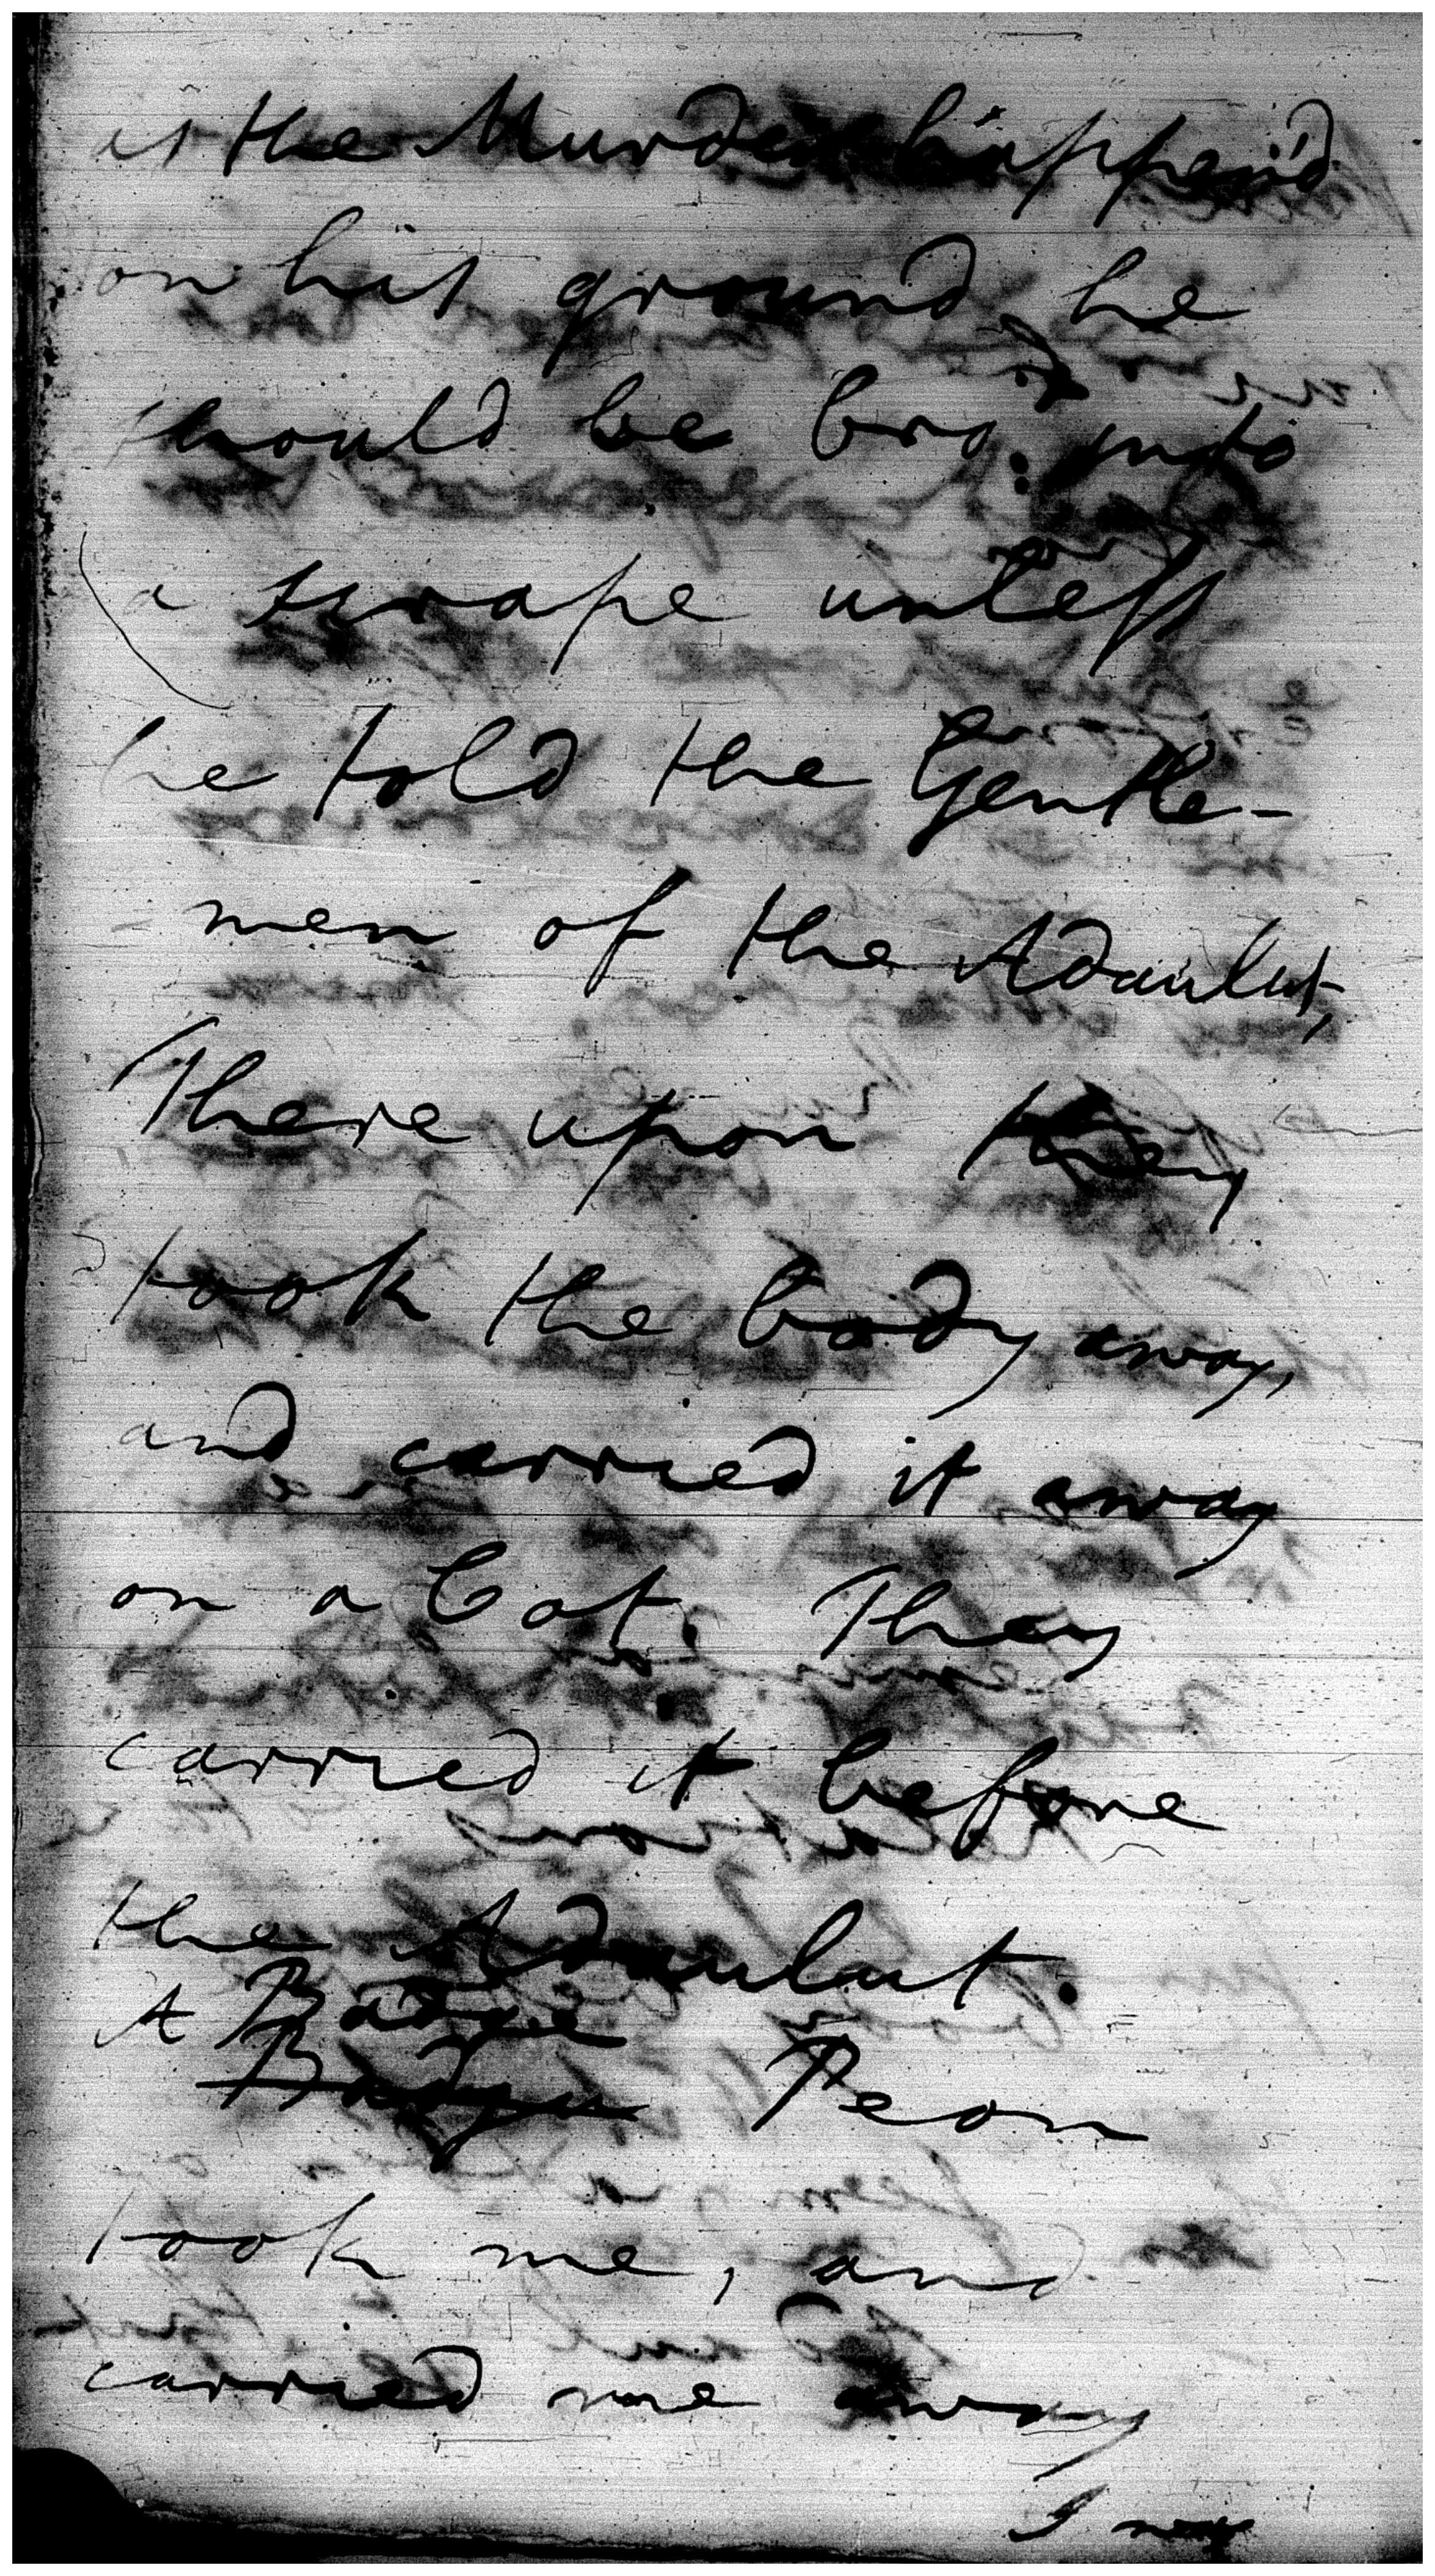 as the Murder happen'd
on his ground, he
should be bro: into
a scrape unless
he told the Gentle-
men of the Adaulut,
There upon they
took the body away,
and carried it away
on a Cot. They
carried it before
the Adaulut.
A Badge
Badge Peon
took me, and
carried me away
I was